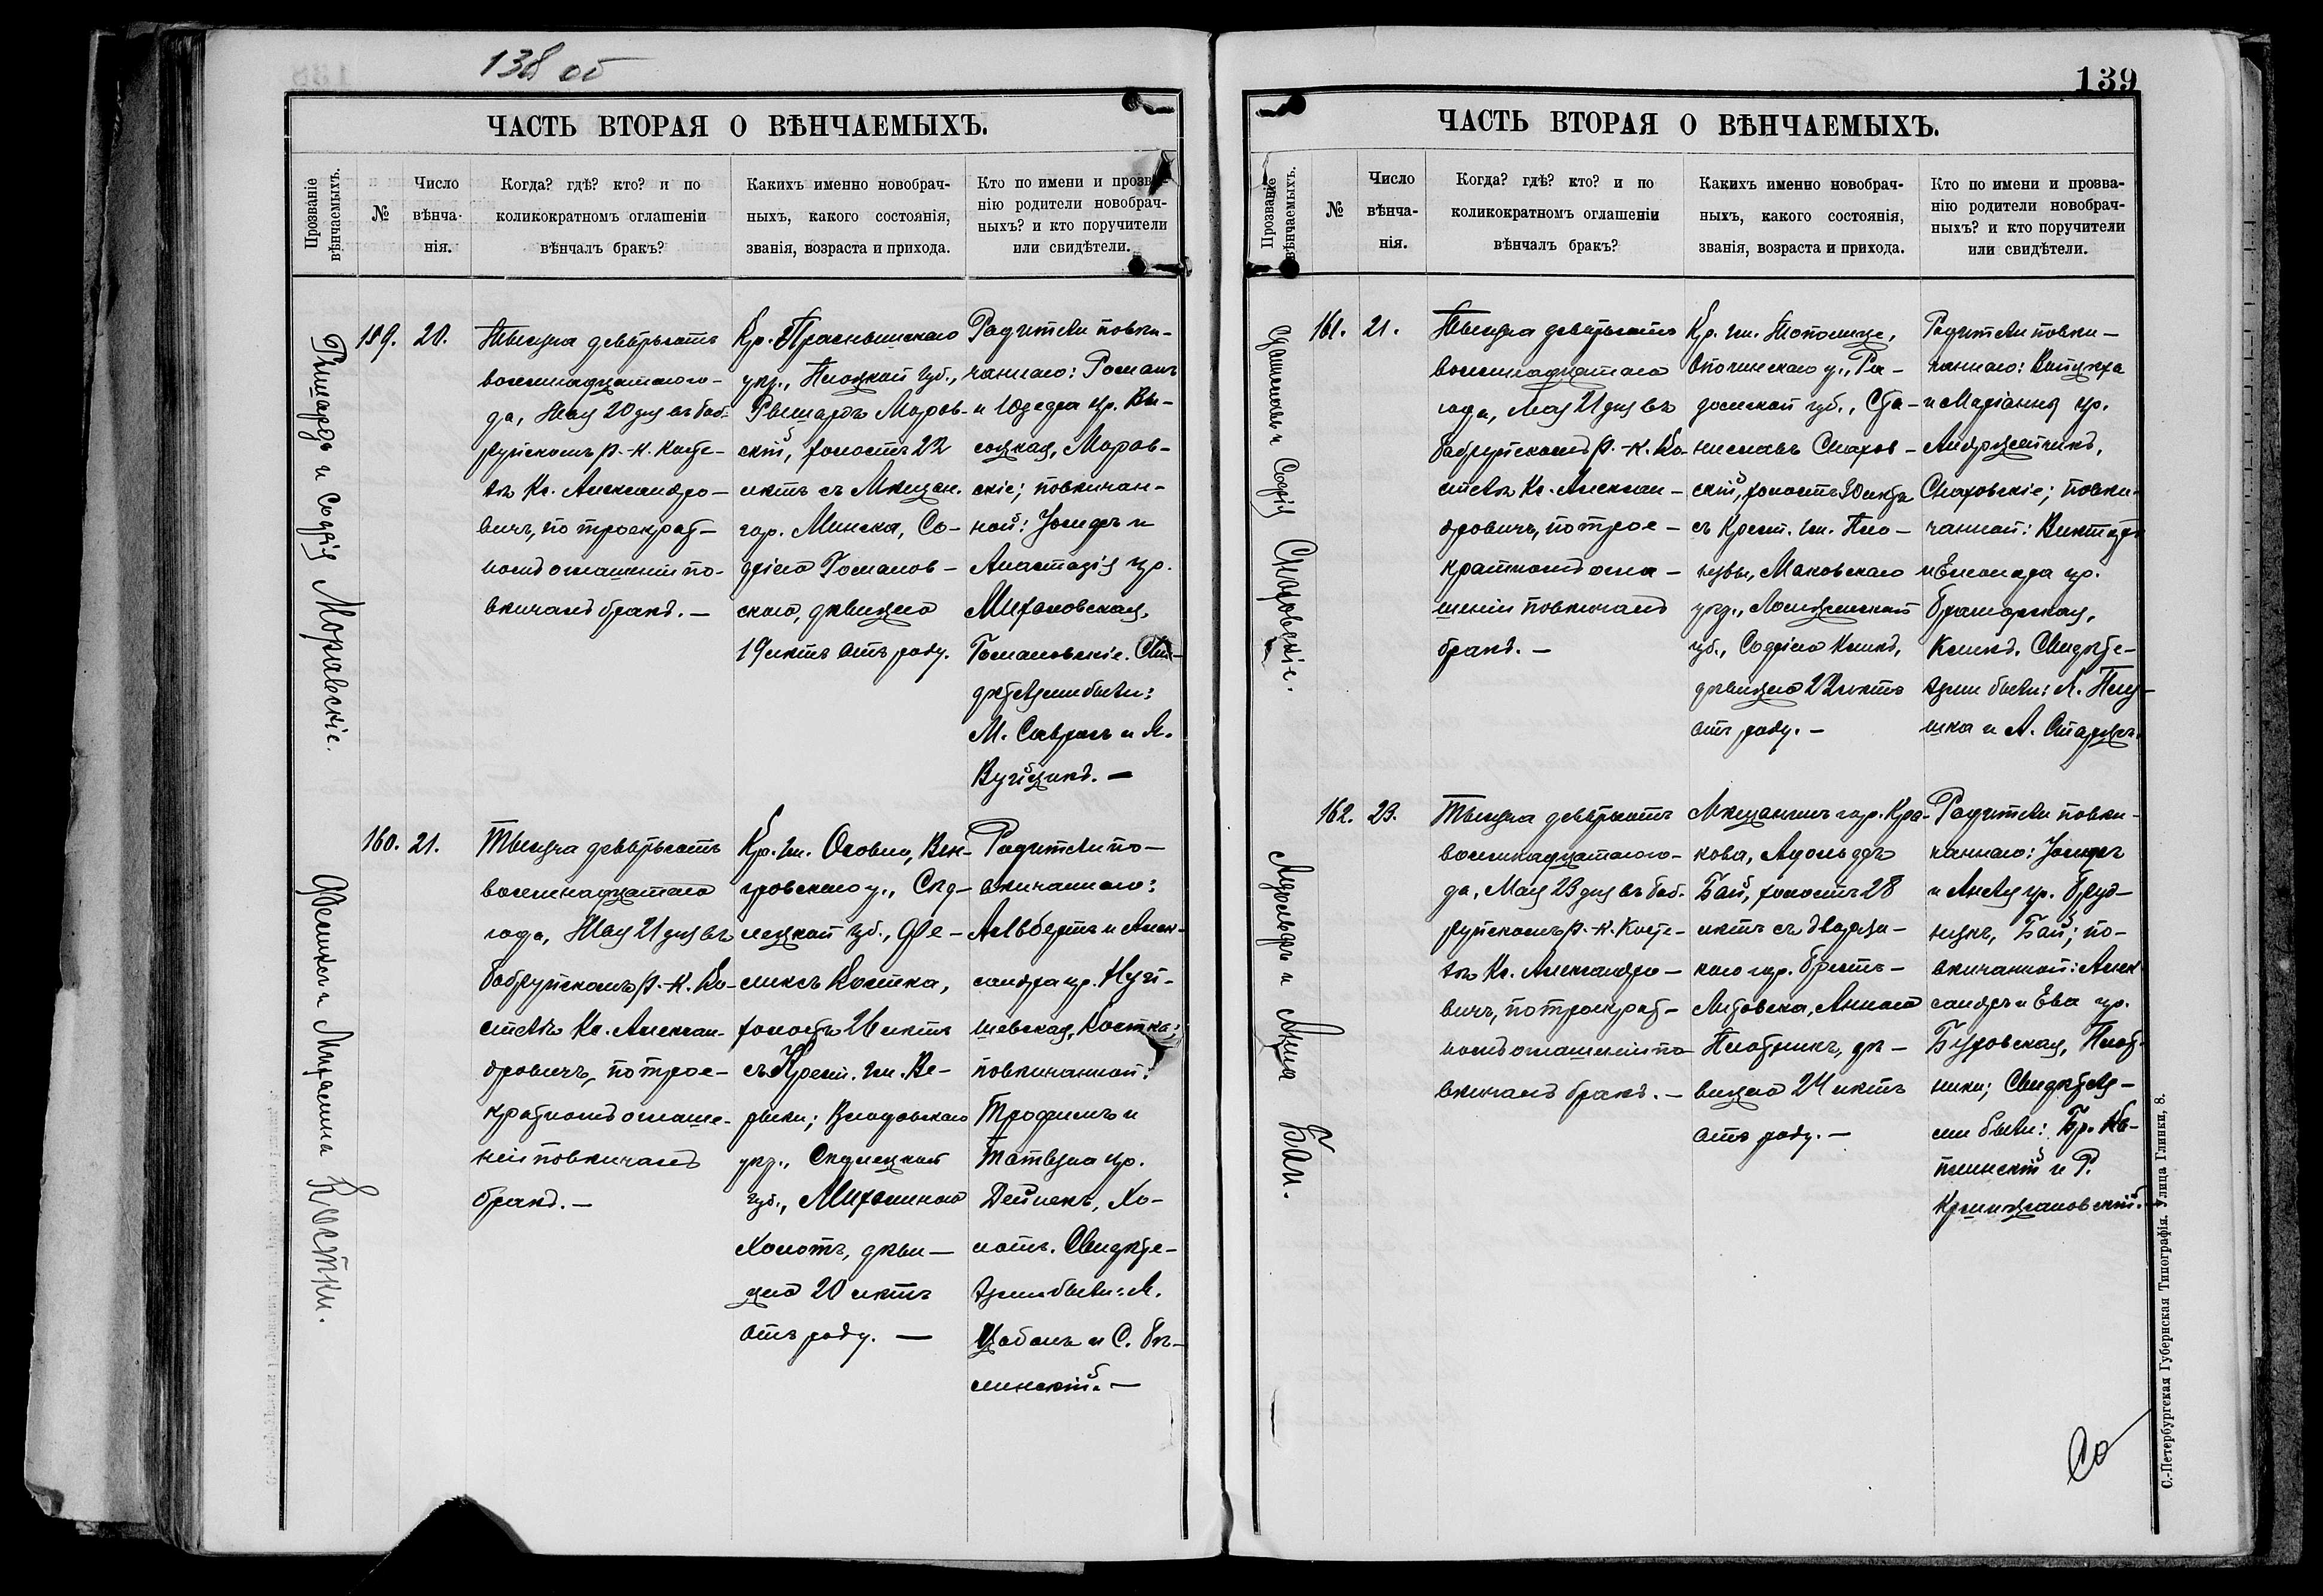 138 об
ЧАСТЬ ВТОРАЯ О ВѢНЧАЕМЫХЪ.
Прозваніе
вѣнчаемыхъ.
№
Число
вѣнча-
нія.
Когда? гдѣ? кто? и по
коликократномъ оглашеніи
вѣнчалъ бракъ?
Какихъ именно новобрач-
ныхъ, какого состоянія,
званія, возраста и прихода.
Кто по имени и прозва-
нію родители новобрач-
ныхъ? и кто поручители
или свидѣтели.
Рышардъ и Софія Моравскіе.
159. 20.
Тысяча девятьсотъ
восемнадцатаго го-
да, Мая 20 дня въ Боб-
руйскомъ р.-к. косте-
лѣ Кс. Александро-
вичъ, по троекрат-
номъ оглашеніи по-
вѣнчалъ бракъ. —
Кр. Праснышскаго
уѣз., Плоцкой губ.,
Рышардъ Морав-
скій, холостъ 22
лѣтъ съ Мѣщан.
гор. Минска, Со-
фіею Гомолов-
скою, дѣвицею
19 лѣтъ отъ роду.
Родители повѣн-
чаннаго: Романъ
и Юзефа ур. Вы-
соцкая, Морав-
скіе; повѣнчан-
ной: Іосифъ и
Анастазія ур.
Михаловская,
М. Саврасъ и А.
Феликсъ и Михалина Костки.
160. 21.
Тысяча девятьсотъ
восемнадцатаго
года, Мая 21 дня въ
Бобруйскомъ р.-к. Ко-
стелѣ Кс. Алексан-
дровичъ, по трое-
кратномъ оглаше-
ніи повѣнчалъ
бракъ. —
Кр. гм. Осовно, Вен-
гровскаго у., Сѣд-
лецкой губ., Фе-
ликсъ Костка,
холостъ 26 лѣтъ
съ Крест. гм. Ве-
рыки; Влодавскаго
уѣз., Сѣдлецкой
губ., Михалиною
Холотъ, дѣви-
цею 20 лѣтъ
отъ роду. —
Родители по-
вѣнчаннаго:
Альбертъ и Алек-
сандра ур.
Костка;
повѣнчанной:
Трофимъ и
Татьяна ур.
Дейнекъ, Хо-
лотъ. Свидѣте-
лями были: А.
Цабанъ и С.
139
ЧАСТЬ ВТОРАЯ О ВѢНЧАЕМЫХЪ.
Прозваніе
вѣнчаемыхъ.
№
Число
вѣнча-
нія.
Когда? гдѣ? кто? и по
коликократномъ оглашеніи
вѣнчалъ бракъ?
Какихъ именно новобрач-
ныхъ, какого состоянія,
званія, возраста и прихода.
Кто по имени и прозва-
нію родители новобрач-
ныхъ? и кто поручители
или свидѣтели.
Станиславъ и Софія Сляховскіе.
161. 21.
Тысяча девятьсотъ
восемнадцатаго
года, Мая 21 дня въ
Бобруйскомъ р.-к. Ко-
стелѣ Кс. Алексан-
дровичъ, по трое-
кратномъ огла-
шеніи повѣнчалъ
бракъ. —
Кр. гм. Топольце,
Опочинскаго у., Ра-
домской губ., Ста-
ниславъ Сляхов-
скій, холостъ 30 лѣтъ
съ Крест. гм.
Маковскаго
уѣз., Ломжинской
губ., Софіею Климъ,
дѣвицею 22 лѣтъ
отъ роду. —
Родители повѣн-
чаннаго:
и Маріанна ур.
Сляховскіе; повѣн-
чанной: Викторъ
и Елеонора ур.
Климъ. Свидѣте-
лями были: А.
и А.
Адольфъ и Анна Бай.
162. 23.
Тысяча девятьсотъ
восемнадцатаго го-
да, Мая 23 дня въ Боб-
руйскомъ р.-к. Косте-
лѣ Кс. Александро-
вичъ, по троекрат-
номъ оглашеніи по-
вѣнчалъ бракъ. —
Мѣщанинъ гор. Кра-
кова, Адольфъ
Бай, холостъ 28
лѣтъ съ дворян-
кою гор. Брестъ-
Литовска, Анною
Плотникъ, дѣ-
вицею 24 лѣтъ
отъ роду. —
Родители повѣн-
чаннаго: Іосифъ
ур.
Бай; по-
вѣнчанной: Алек-
сандръ и Ева ур.
Буховская, Плот-
ники; Свидѣтеля-
ми были: Бр.
и Р.
С.-Петербургская Губернская Типографія. Улица Глинки, 8.